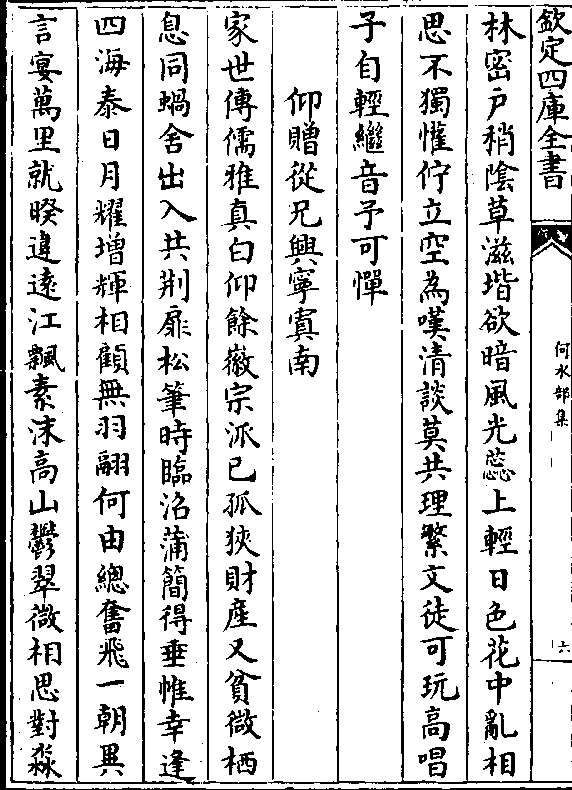 欽定四庫全書
何水部集
六
林密戶稍陰草滋堦欲暗風光蕊上輕日色花中亂相
思不獨懽佇立空為嘆清談莫共理繁文徒可玩高唱
子自輕繼音予可憚
仰贈從兄興寧寘南
家世傳儒雅真白仰餘徽宗派已孤狹財產又貧微栖
息同蝸舍出入共荆扉松筆時臨沼蒲簡得垂帷幸逢
四海泰日月耀增輝相顧無羽翮何由總奮飛一朝異
言宴萬里就暌違遠江飄素沫高山鬱翠微相思對淼